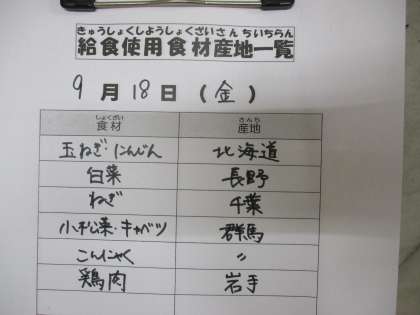 きゅうしょくしようしょくざいさんちいちらん
給食使用食材産地一覧
9月18日(金)
しょくざい さんち
食材 産地
玉ねぎ・にんじん 北海道
白菜 長野
ねぎ 千葉
小松菜・キャベツ 群馬
こんにゃく 〃
鶏肉 岩手